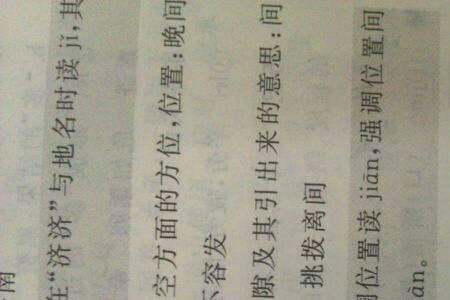 南
在“济济”与地名时读 jǐ,其
空方面的方位,位置:晚间
不容发
隙及其引出来的意思:间
挑拨离间
位置读 jiān,强调位置间
àn。